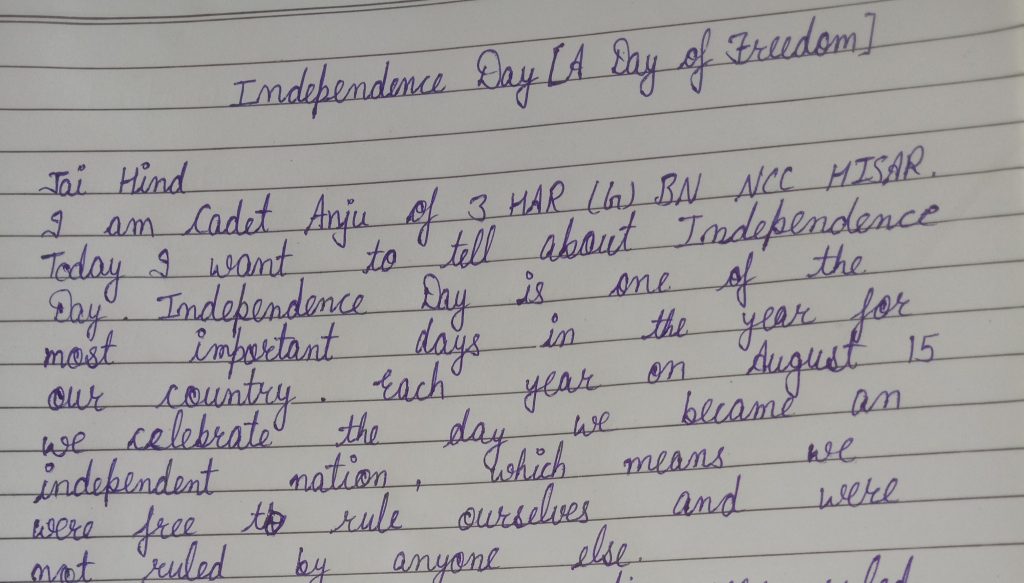 Independence Day [A Day of Freedom]
Jai Hind
I am Cadet Anju of 3 HAR (G) BN NCC HISAR.
Today I want to tell about Independence
Day. Independence Day is one of the
most important days in the year for
our country. Each year on August 15
we celebrate the day we became an
independent nation, which means we
were free to rule ourselves and were
not ruled by anyone else.